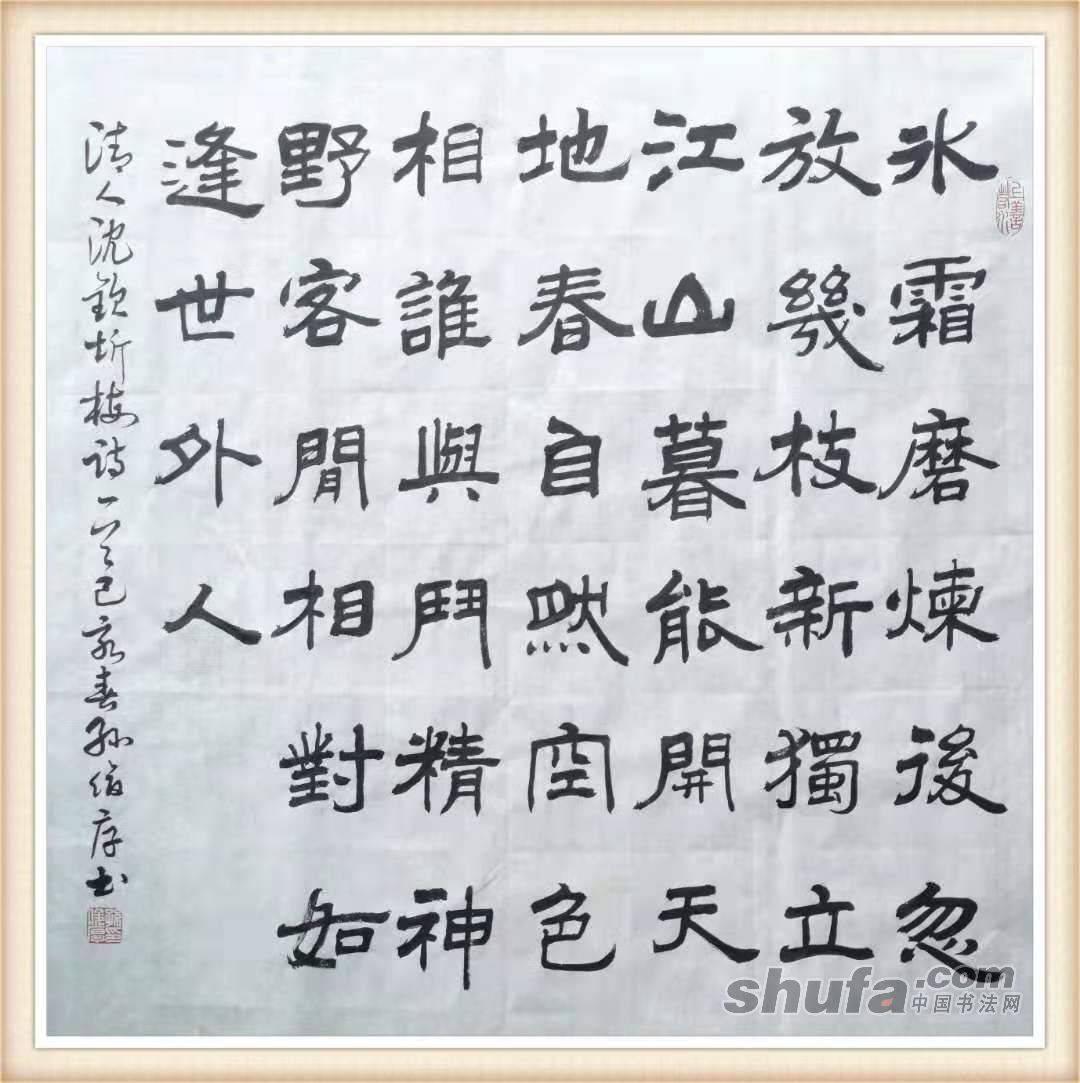 上善若水
氷霜磨煉後忽
放幾枝新獨立
江山暮能開天
地春自然空色
相誰與鬥精神
野客閒相對如
逢世外人
清人沈欽圻梅詩一首己亥春孫存書
shufa.com
中国书法网